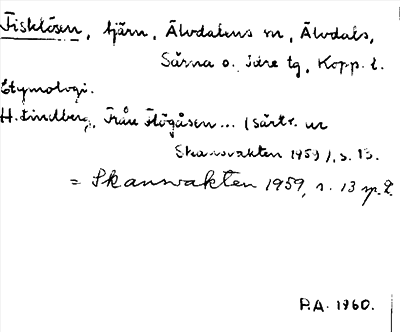 Fisklösen, tjärn, Älvdalens sn, Älvdals,
Särna o. Idre tg, Kopp. l.
Etymologi.
H. Lindberg, Från Högåsen... (Särtr. ur
Skansvakten 1959), s. 13.
= Skansvakten 1959, s. 13 sp. 2.
P.A. 1960.